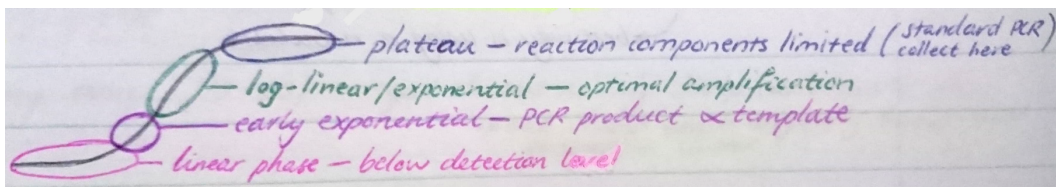 plateau – reaction components limited (standard PCR
collect here)
log-linear/exponential – optimal amplification
early exponential – PCR product ∝ template
linear phase – below detection level